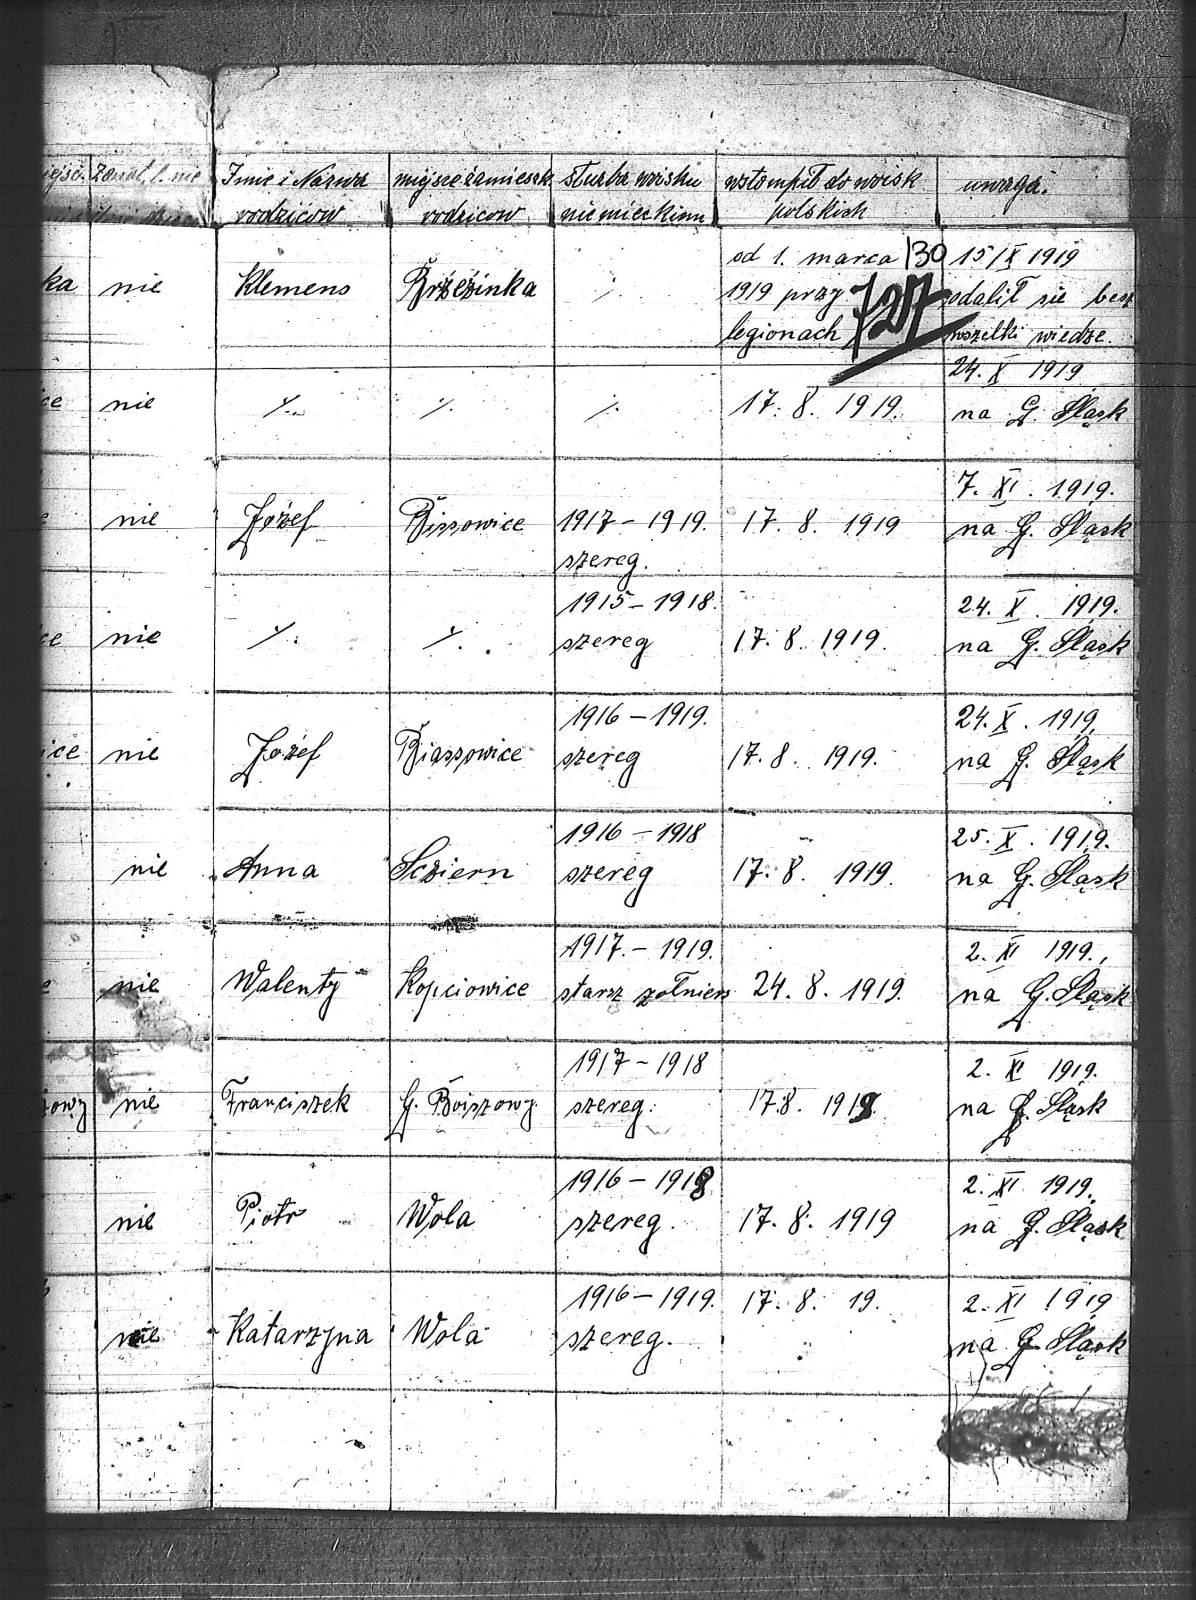 żonat, l. nie
Imie i Nazwa rodziców
miejsce zamieszk. rodzicow
służba woisku niemieckiem
wstompił do woisk polskich
uwaga.
ka nie Klemens Brzezinka ⁒ od 1. marca 1919 przy legionach 130 727 15/X 1919 odalił sie besz wszelki wiedze.
ce nie ⁒ ⁒ ⁒ 17. 8. 1919. 24. X 1919 na G. Śląsk
nie Józef Bissowice 1917 - 1919. szereg. 17. 8. 1919 7. XI. 1919. na G. Śląsk
ce nie ⁒ ⁒ 1915 - 1918. szereg 17. 8. 1919. 24. X. 1919. na G. Śląsk
ice nie Józef Biassowice 1916 - 1919. szereg 17. 8. 1919. 24. X. 1919. na G. Śląsk
nie Anna Scziern 1916 - 1918 szereg 17. 8. 1919. 25. X. 1919. na G. Śląsk
nie Walenty Kopciowice 1917. - 1919. starsz żołniers 24. 8. 1919. 2. XI 1919. na G. Śląsk
zowy nie Franciszek G. Boiszowy 1917 - 1918 szereg. 17.8. 1919. 2. XI 1919. na G. Śląsk
nie Piotr Wola 1916 - 1918 szereg. 17. 8. 1919 2. XI 1919. na G. Śląsk
nie Katarzyna Wola 1916 - 1919. szereg. 17. 8. 19. 2. XI 1919 na G. Śląsk